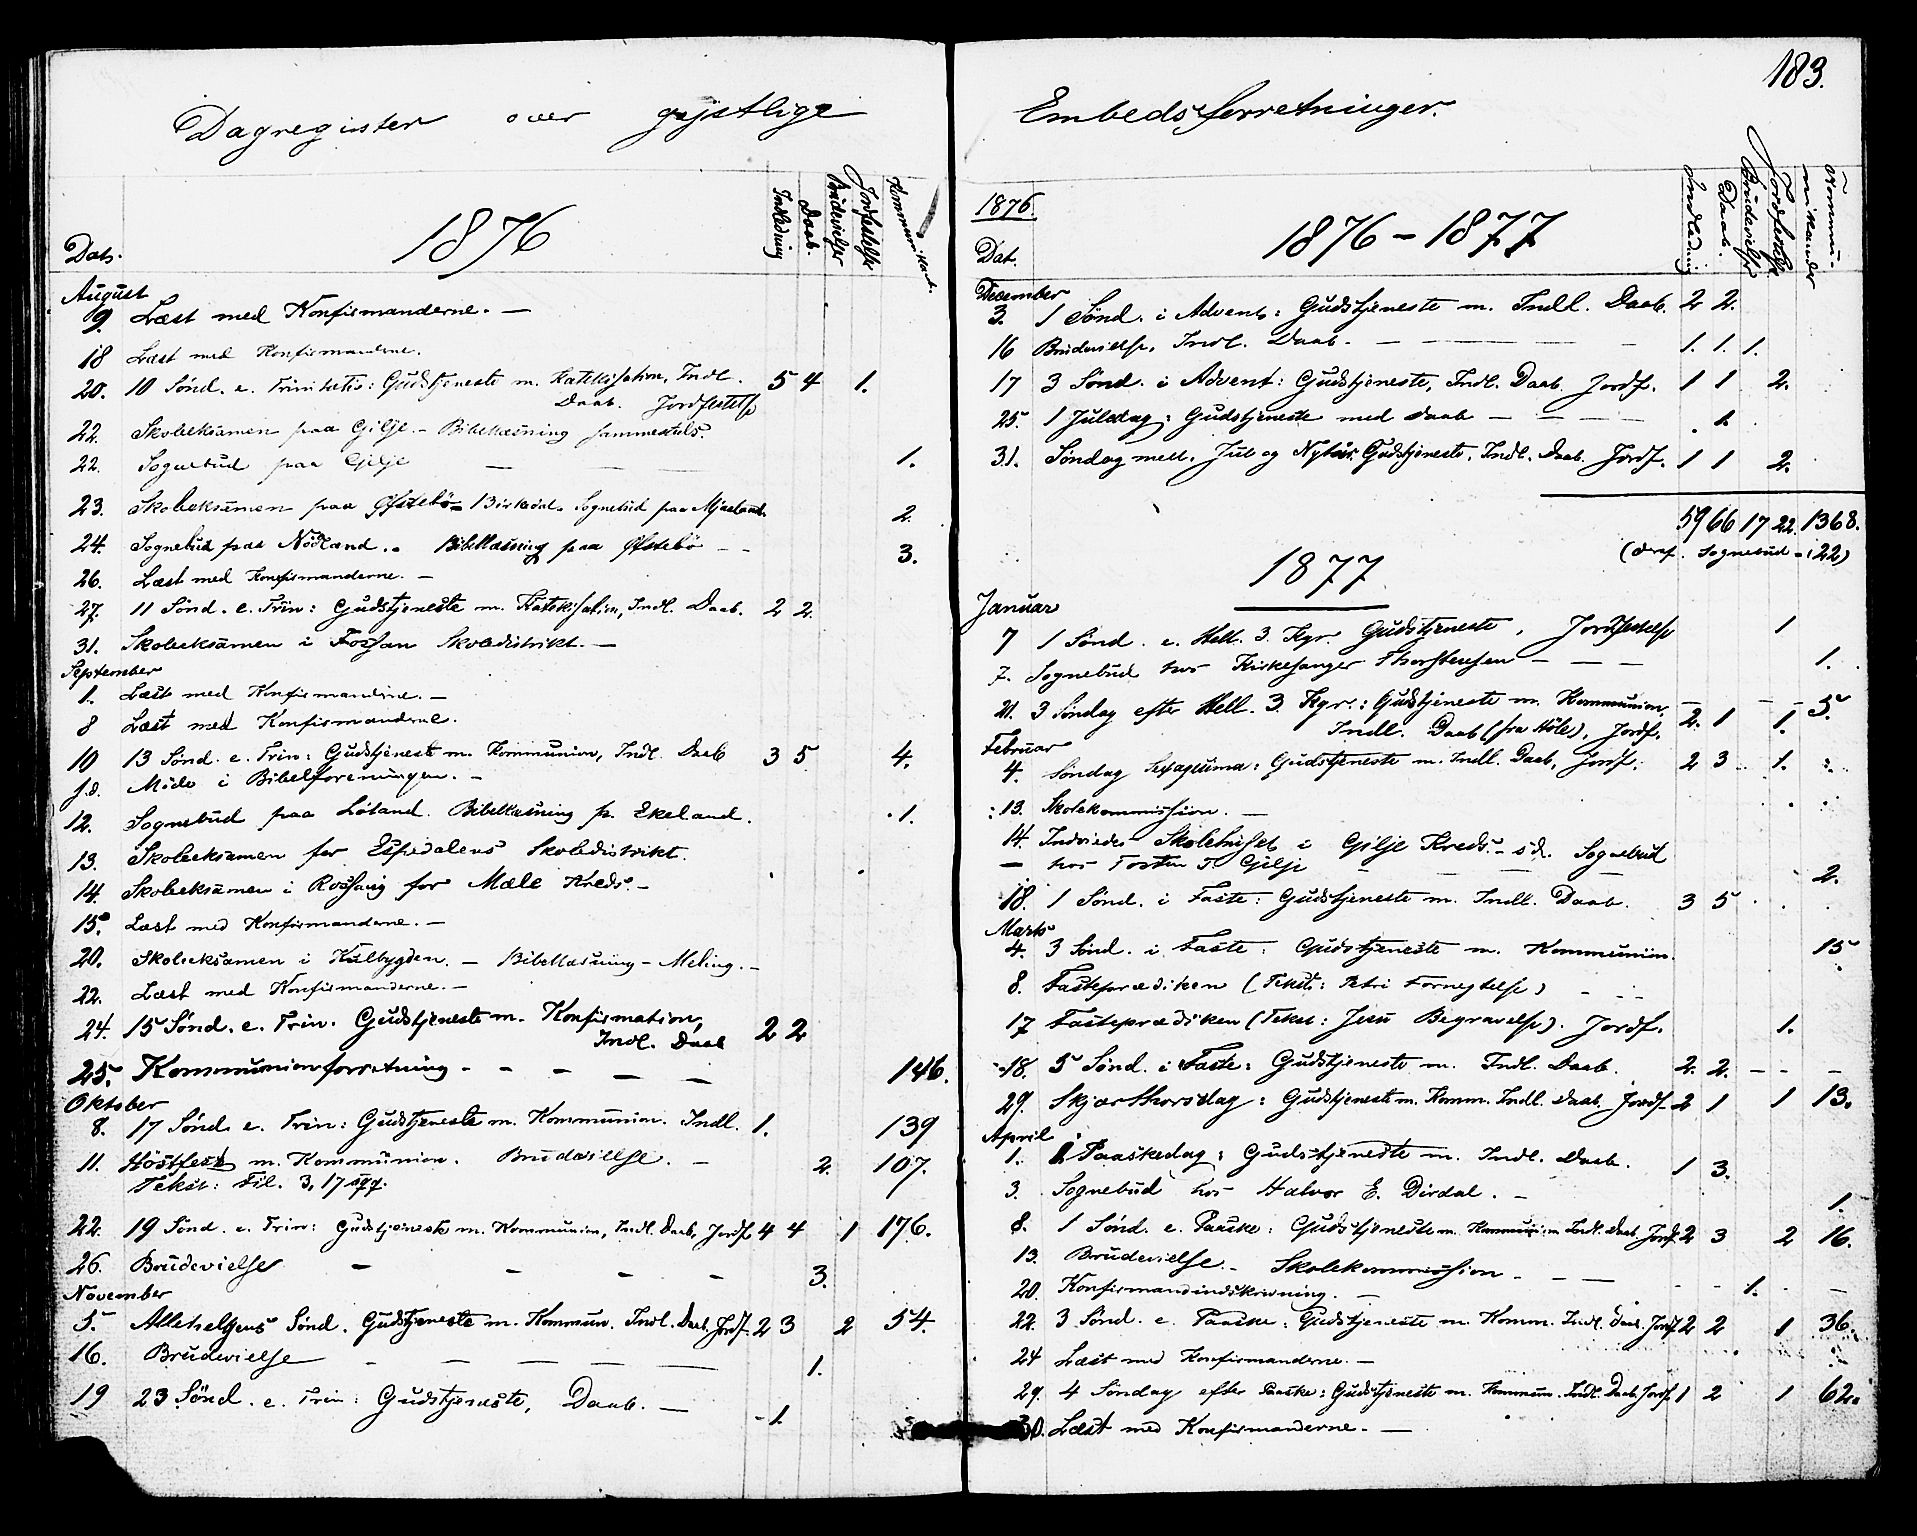 183.
Dagregister over gejstlige
Dat.
1876
Indledning
Daab.
Brudevielser
Jordfæstelse
Kommunikant.
August
9. Læst med Konfirmanderne. —
18 Læst med Konfirmanderne.
20. 10 Sönd. e. Trinitatis: Gudstjeneste m. Katekisation, Indl. 5 4 1.
Daab. Jordfæstelse
22. Skoleeksamen paa Gilje. — Bibellæsning sammesteds.
22. Sognebud paa Gilje — — — 1.
23. Skoleeksamen paa Østebö - Birkedal. Sognebud paa Mjaaland. 2.
24. Sognebud paa Nödland. Bibellæsning paa Østebö — — 3.
26. Læst med Konfirmanderne. —
27. 11 Sönd. e. Trin: Gudstjeneste m. Katekisation, Indl. Daab. 2 2.
31. Skoleeksamen i Fossan Skoledistrikt. —
September
1. Læst med Konfirmanderne. —
8 Læst med Konfirmanderne.
10 13 Sönd. e. Trin: Gudstjeneste m. Kommunion, Indl. Daab 3 5. 4.
s.d. Möde i Bibelforeningen. —
12. Sognebud paa Löland. Bibellæsning p. Ekeland. 1.
13. Skoleeksamen for Espedalens Skoledistrikt.
14. Skoleeksamen i for Mæle Kreds. —
15. Læst med Konfirmanderne. —
20. Skoleeksamen i Kalbygden. — Bibellæsning — Meling. —
22. Læst med Konfirmanderne. —
24. 15 Sönd. e. Trin. Gudstjeneste m. Konfirmation,
Indl. Daab 2 2
25. Kommunionforretning - — — — — 146.
Oktober
8. 17 Sönd. e. Trin: Gudstjeneste m. Kommunion. Indl. 1. 139
11. Höstfest m. Kommunion. Brudevielse. — 2. 107.
Tekst: Fil. 3, 17 sqq.
22. 19 Sönd. e. Trin: Gudstjeneste m. Kommunion, Indl. Daab, Jordf. 4 4 1 176.
26. Brudevielse — — — — 3.
November
5. Allehelgens Sönd. Gudstjeneste m. Kommun. Indl. Daab. Jordf. 2 3 2 54.
16. Brudevielse — — — — — 1.
19 23 Sönd. e. Trin: Gudstjeneste, Daab. — - 1.
Embedsforretninger.
1876.
Dat.
1876 - 1877
Indledning
Daab.
Brudevielse
Jordfæstelse
Kommu-
nikanter
December
3. 1 Sönd. i Advent: Gudstjeneste m. Indl. Daab. 2 2.
16 Brudevielse, Indl. Daab. — — — — — 1. 1. 1.
17 3 Sönd. i Advent: Gudstjeneste, Indl. Daab. Jordf. 1 1 2.
25. 1 Juledag: Gudstjeneste med Daab — — — . 1
31. Söndag mell. Jul og Nytår. Gudstjeneste. Indl. Daab. Jordf. 1 1 2.
59 66 17 22. 1368.
(deraf. Sognebud - 122)
1877
Januar
7 1 Sönd. e. Hell. 3. Kgr. Gudstjeneste, Jordfæstelse 1
7. Sognebud hos Kirkesanger Thorstensen — — — 1.
21. 3 Söndag efter Hell. 3 Kgr.: Gudstjeneste m. Kommunion,
Indl. Daab (fra Höle), Jordf. 2. 1 1. 5.
Februar
4. Söndag Sexagesima: Gudstjeneste m. Indl. Daab, Jordf. 2 3 1.
13. Skolekommission. —
14. Indviedes Skolehuset i Gilje Kreds. — s.d. Sognebud
— hos Tosten T. Gilje — — — — 2.
18. 1 Sönd. i Faste: Gudstjeneste m. Indl. Daab. 3 5
Marts
4. 3 Sönd. i Faste: Gudstjeneste m. Kommunion. 15
8. Fasteprædiken (Tekst: Petri Fornegtelse) — — —
17 Fasteprædiken (Tekst: Jesu Begravelse). Jordf. 1.
18. 5 Sönd. i Faste: Gudstjeneste m. Indl. Daab. 2. 2. — — —
29. Skjærthorsdag: Gudstjeneste m. Komm. Indl. Daab. Jordf. 2 1 1 13.
April
1. 1 Paaskedag: Gudstjeneste m. Indl. Daab. 1 3.
3. Sognebud hos Halvor E. Dirdal. — 1.
8. 1 Sönd. e. Paaske: Gudstjeneste m. Kommunion Indl. Daab. Jordf. 2 3 2 16.
13. Brudevielse. — Skolekommission - — — 1.
20. Konfirmandindskrivning. —
22. 3 Sönd. e. Paaske: Gudstjeneste m. Komm. Indl. Daab. Jordf. 2 2 1 36.
24 Læst med Konfirmanderne. —
29. 4 Söndag efter Paaske: Gudstjeneste m. Kommun. Indl. Daab Jordf. 1 2 1 62.
30. Læst med Konfirmanderne. —